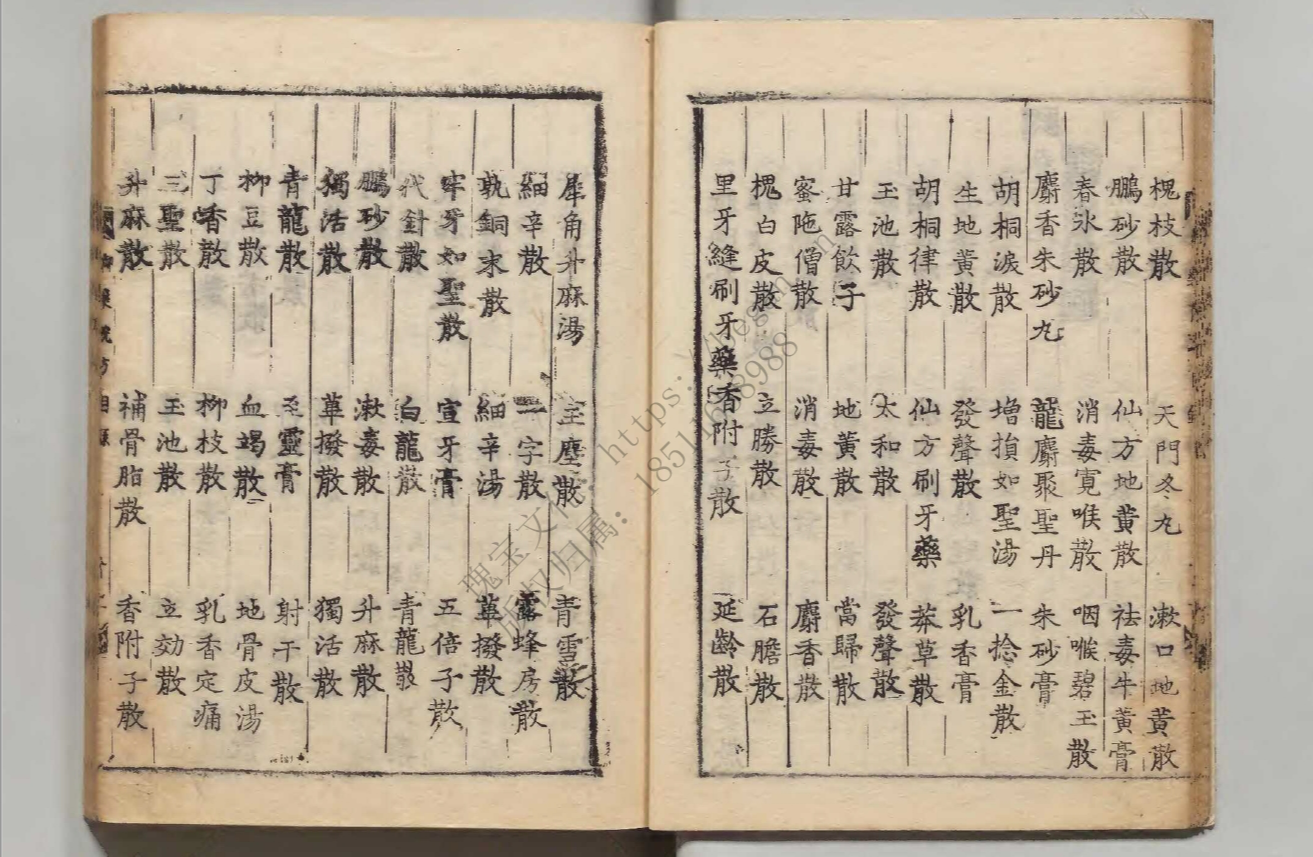 槐枝散 天門冬丸 漱口地黃散
鵬砂散 仙方地黃散 祛毒牛黃膏
春氷散 消毒寛喉散 咽喉碧玉散
麝香朱砂丸 龍麝聚聖丹 朱砂膏
胡桐淚散 增損如聖湯 一捻金散
生地黃散 發聲散 乳香膏
胡桐律散 仙方刷牙藥 莽草散
玉池散 太和散 發聲散
甘露飲子 地黃散 當歸散
蜜陁僧散 消毒散 麝香散
槐白皮散 立勝散 石膽散
里牙縫刷牙藥香附子散 延齡散
犀角升麻湯 玉塵散 青雪散
細辛散 一字散 露蜂房散
執銅末散 細辛湯 蓽撥散
牢牙如聖散 宣牙膏 五倍子散
代針散 白龍散 青龍散
鵬砂散 漱毒散 升麻散
獨活散 蓽撥散 獨活散
青龍散 至靈膏 射干散
柳豆散 血竭散 地骨皮湯
丁香散 柳枝散 乳香定痛
三聖散 玉池散 立効散
升麻散 補骨脂散 香附子散
御藥院方目錄
瑰宝文化 https:
版权归属: 18511688988